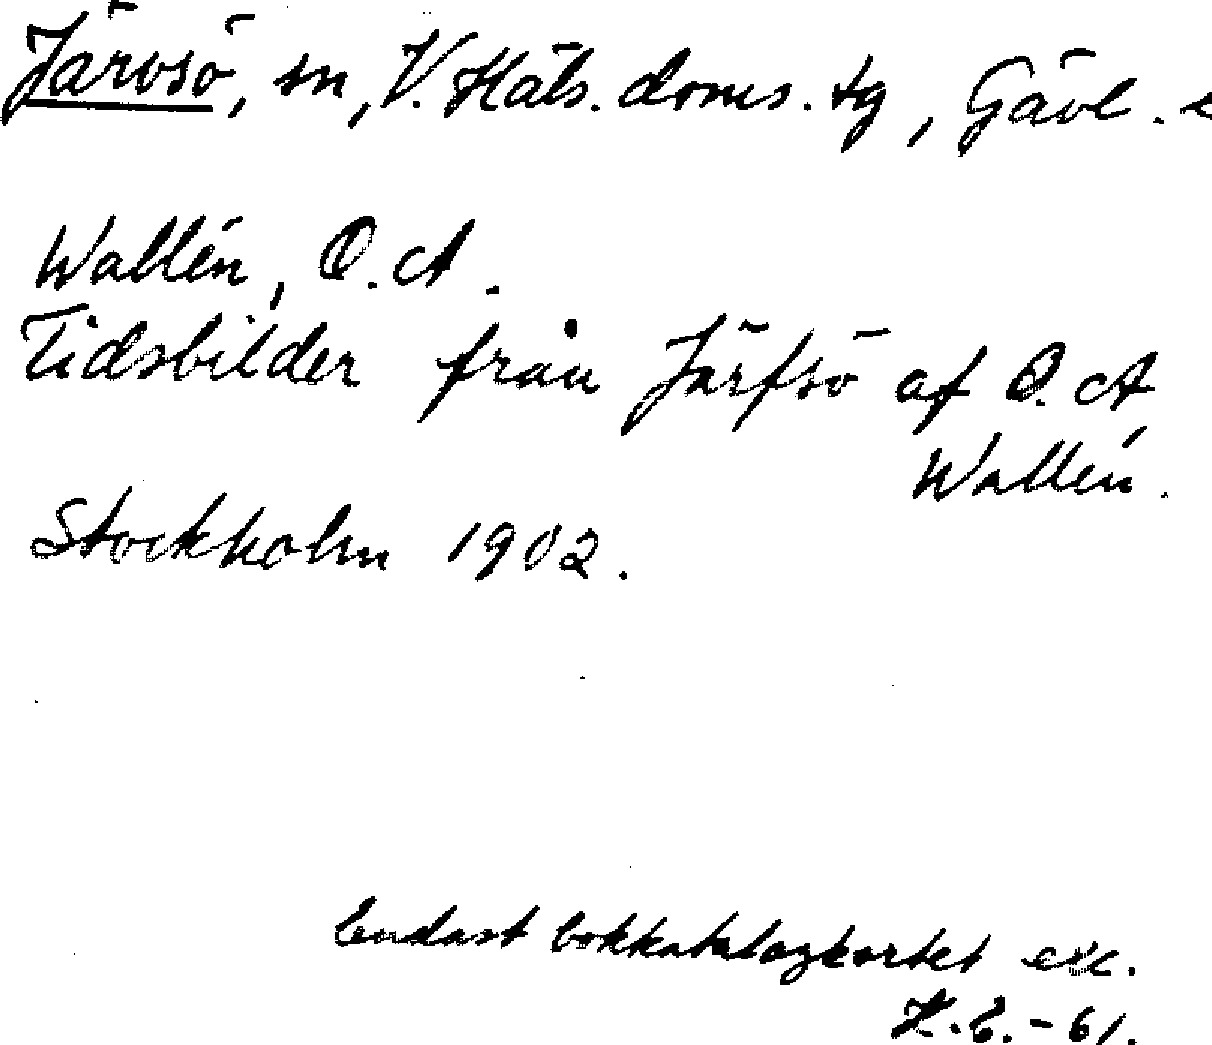 Järvsö, sn, V. Häls. doms. tg, Gävl.
Wallén, O. A.
Tidsbilder från Järfsö af O. A
Wallén.
Stockholm 1902.
Endast bokkatalogkortet exc.
H. E. - 61.